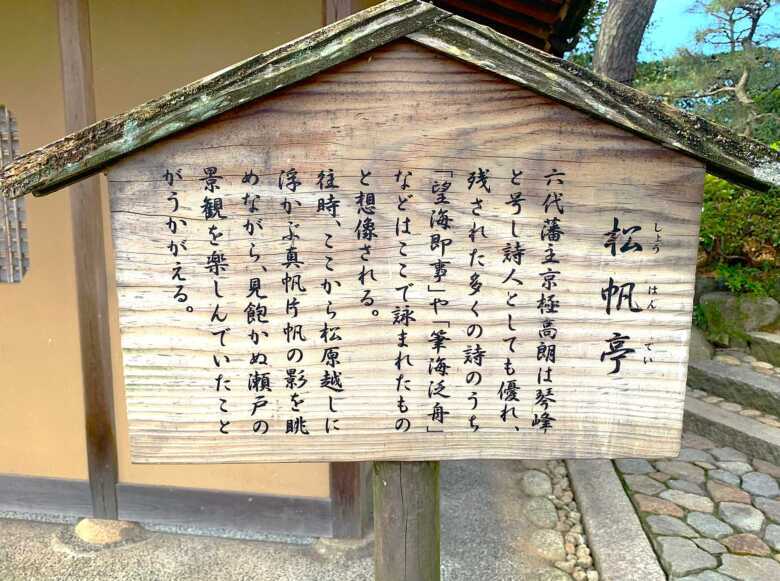 松帆亭
しょうはんてい
六代藩主京極高朗は琴峰
と号し詩人としても優れ、
残された多くの詩のうち
「望海即事」や「筆海泛舟」
などはここで詠まれたもの
と想像される。
往時、ここから松原越しに
浮かぶ真帆片帆の影を眺
めながら、見飽かぬ瀬戸の
景観を楽しんでいたこと
がうかがえる。